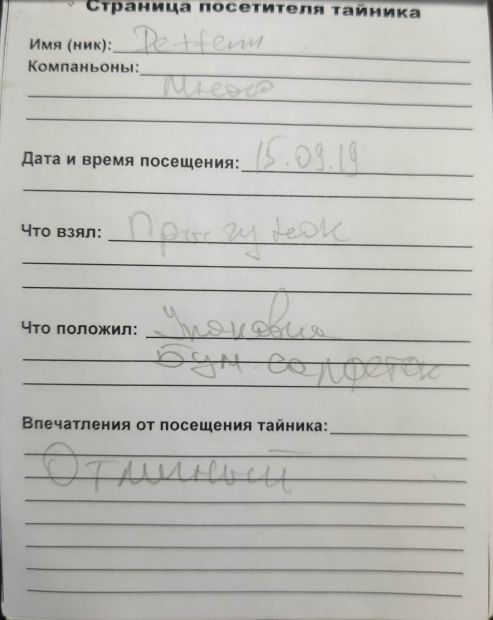 Страница посетителя тайника
Имя (ник):
Компаньоны:
Много
Дата и время посещения: 15.09.19
Что взял: Прыгунок
Что положил: Упаковка
Бум. салфеток
Впечатления от посещения тайника:
Отличный